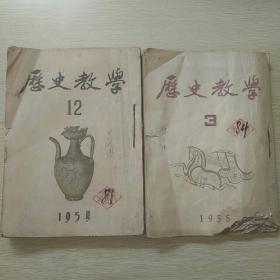 歷史教學
12
1954
歷史教學
3
84
1955